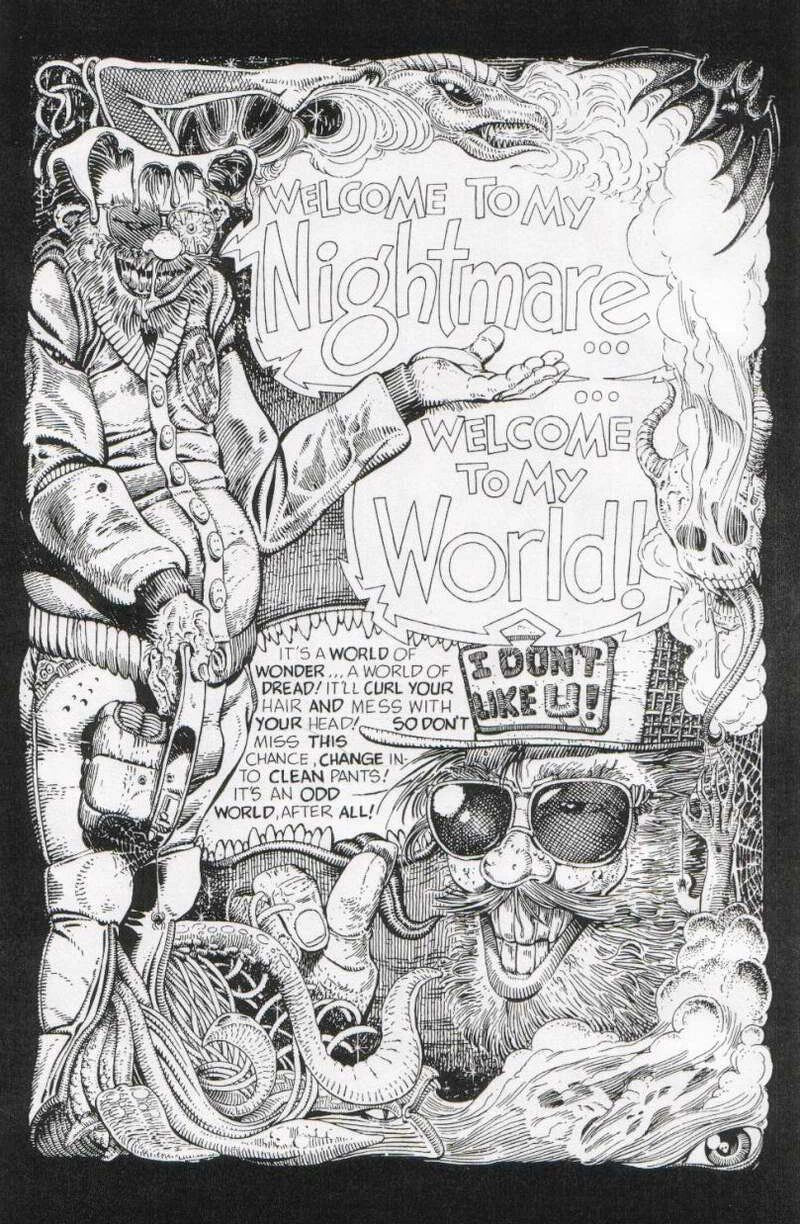 WELCOME TO MY
Nightmare
...
...
WELCOME
TO MY
World!
IT'S A WORLD OF
WONDER... A WORLD OF
DREAD! IT'LL CURL YOUR
HAIR AND MESS WITH
YOUR HEAD! SO DON'T
MISS THIS
CHANCE, CHANGE IN-
TO CLEAN PANTS!
IT'S AN ODD
WORLD, AFTER ALL!
I DON'T
LIKE U!